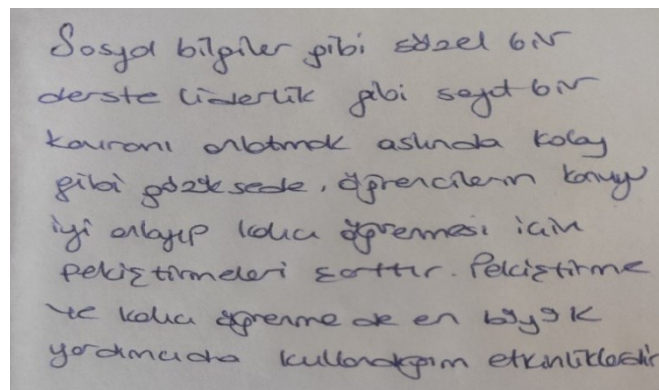 Sosyal bilgiler gibi sözel bir
derste liderlik gibi soyut bir
kavramı anlatmak aslında kolay
gibi gözüksede, öğrencilerin konuyu
iyi anlayıp kalıcı öğrenmesi için
pekiştirmeleri şarttır. Pekiştirme
ve kalıcı öğrenme de en büyük
yardımcıda kullandığım etkinliklerdir